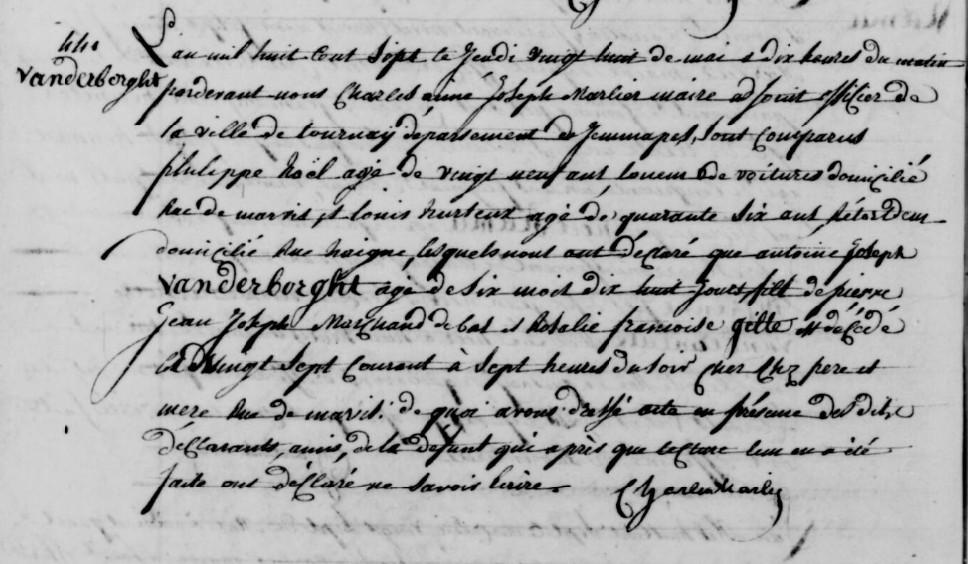 441
Vanderborght
L'an mil huit cent sept le jeudi vingt huit de mai a dix heures du matin
pardevant nous Charles anné Joseph Marlier maire adjoint officier de
la ville de tournay département de Jemmapes, sont comparus
philippe Noël agé de vingt neuf ans loueur de voitures domicilié
Rue de marvis, et louis hurteux agé de quarante six ans Retordeur
domicilié Rue haigne, lesquels nous ont déclaré que antoine Joseph
Vanderborght agé de six mois dix huit jours fils de pierre
Jean Joseph Marchand de bas et Rosalie francoise gille est décédé
le vingt sept Courant à sept heures du soir chez ses pere et
mere Rue de marvis. de quoi avons dressé acte en présence des dits
déclarants, amis, de la defunt qui après que lecture leur en a été
faite ont déclaré ne savoir écrire
Charles Marlier